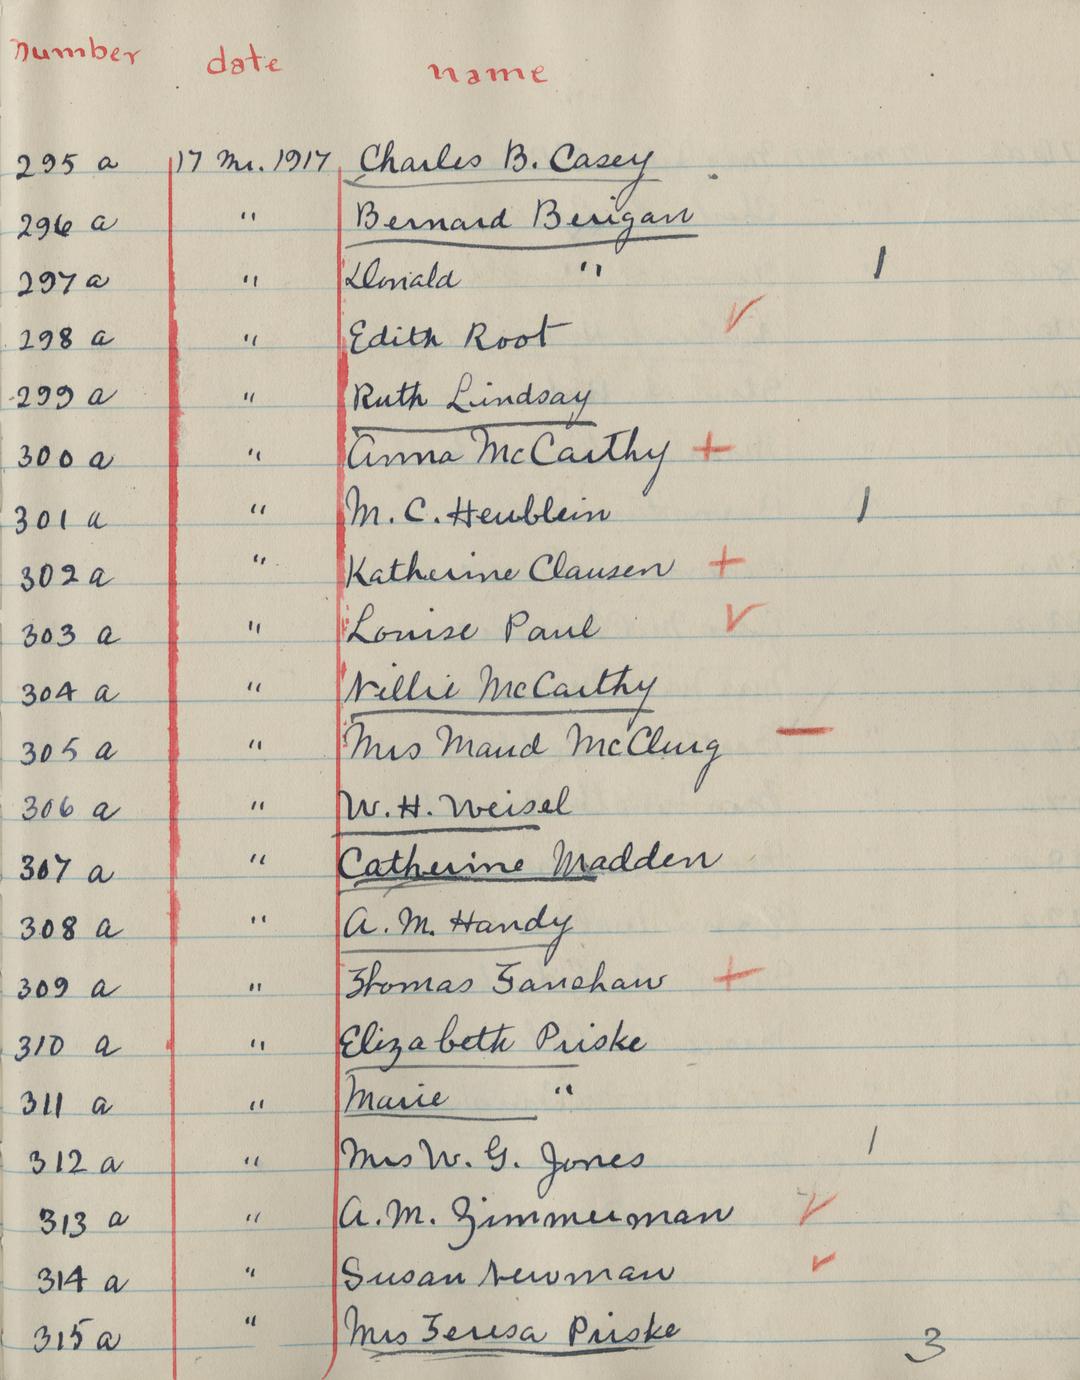 number date name
295 a 17 Mr. 1917 Charles B. Casey
296 a " Bernard Berigan
297 a " Donald " 1
298 a " Edith Root ✓
299 a " Ruth Lindsay
300 a " Anna McCarthy +
301 a " M. C. Heublein 1
302 a " Katherine Clausen +
303 a " Louise Paul ✓
304 a " Nillie McCarthy
305 a " Mrs Maud McClurg —
306 a " W. H. Weisel
307 a " Catherine Madden
308 a " A. M. Handy
309 a " Thomas Fanshaw +
310 a " Elizabeth Priske
311 a " Marie "
312 a " Mrs W. G. Jones 1
313 a " A. M. Zimmerman ✓
314 a " Susan Newman ✓
315 a " Mrs Teresa Priske 3